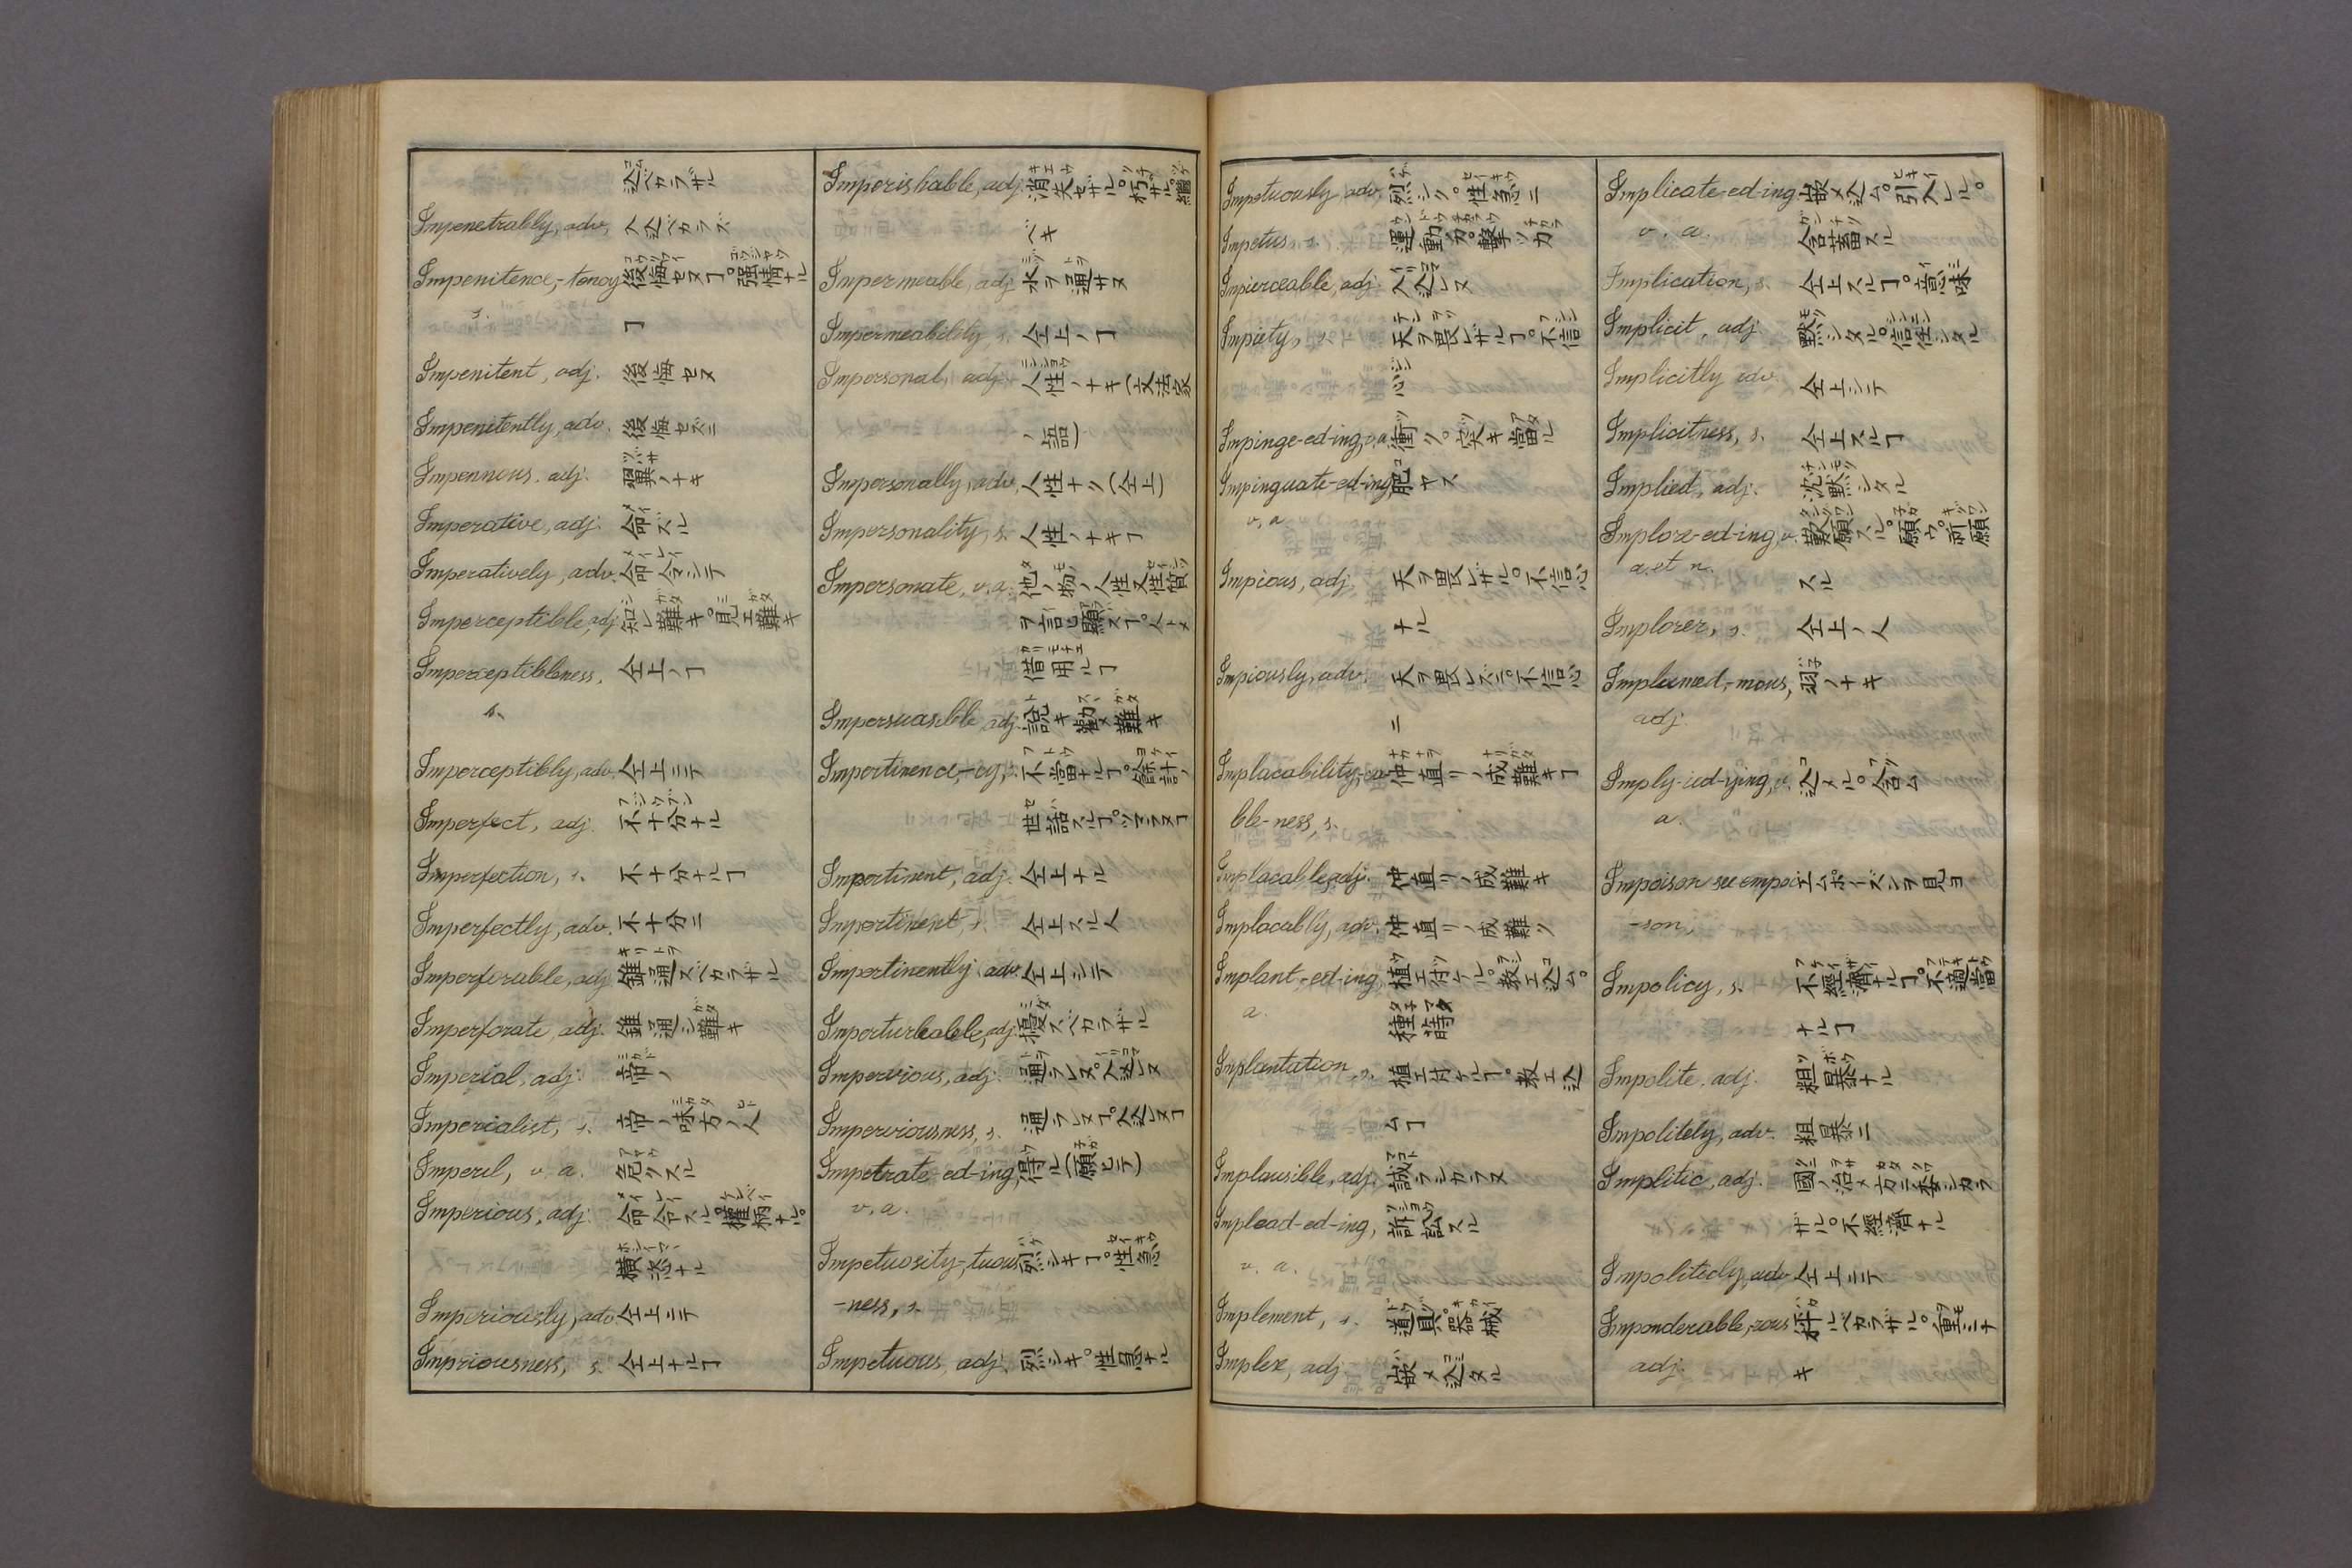 込ベカラザル
Impenetrably, adv. 入込ベカラズ
Impenitence,-tency 後悔セヌヿ。強情ナル
s. ヿ
Impenitent, adj. 後悔セヌ
Impenitently, adv. 後悔セズニ
Impennous, adj. 翼ノナキ
Imperative, adj. 命ズル
Imperatively, adv. 命令シテ
Imperceptible, adj. 知レ難キ。見エ難キ
Imperceptibleness, 仝上ノヿ
s.
Imperceptibly, adv. 仝上ニテ
Imperfect, adj. 不十分ナル
Imperfection, s. 不十分ナルヿ
Imperfectly, adv. 不十分ニ
Imperforable, adj. 錐通スベカラザル
Imperforate, adj. 錐通シ難キ
Imperial, adj. 帝ノ
Imperialist, s. 帝ノ味方ノ人
Imperil, v. a. 危クスル
Imperious, adj. 命令スル。權柄ナル。
橫恣ナル
Imperiously, adv. 仝上ニテ
Impriousness, s. 仝上ナルヿ
Imperishable, adj. 消失セザル。朽ザル。
ベキ
Impermeable, adj. 水ヲ通サヌ
Impermeability, s. 仝上ノヿ
Impersonal, adj. 人性ノナキ(文法家
ノ語)
Impersonally, adv. 人性ナク(仝上)
Impersonality, s. 人性ノナキヿ
Impersonate, v. a. 他ノ物ノ人性又性質
ヲ言ヒ顯スヿ。
借用ルヿ
Impersuasible, adj. 說キ勸メ難キ
Impertinence,-cy, 不當ナルヿ。餘計ノ
世話スルヿ。ツマラヌヿ
Impertinent, adj. 仝上ナル
Impertinent, s. 仝上スル人
Impertinently adv. 仝上シテ
Imperturbable, adj. 擾スベカラザル
Impervious, adj. 通ラレヌ。入込レヌ
Imperviousness, s. 通ラレヌヿ。入込レヌヿ
Impetrate-ed-ing, 得ル(願ヒテ)
v. a.
Impetuosity-,tuous 烈シキヿ。性急
-ness, s.
Impetuous, adj. 烈シキ。性急ナル
Impetuously, adv. 烈シク。性急ニ
Impetus, s. 運動力。擊ツ力
Impierceable, adj. 入込レヌ
Impiety, s. 天ヲ畏レザルヿ。不信
心
Impinge-ed-ing, v.a. 衝ク。突キ當ル
Impinguate-ed-ing 肥ヤス
v. a.
Impious, adj. 天ヲ畏レザル。不信心
ナル
Impiously, adv. 天ヲ畏レズニ。不信心
ニ
Implacability,-ca 仲直リノ成難キヿ
ble-ness, s.
Implacable, adj. 仲直リノ成難キ
Implacably, adv. 仲直リノ成難ク
Implant-ed-ing, 植エ付ケル。敎エ込ム。
a. 種蒔
Implantation, s. 植エ付ケルヿ。敎エ込
ムヿ
Implausible, adj. 誠ラシカラヌ
Implead-ed-ing, 訴訟スル
v. a.
Implement, s. 道具。器械
Implex, adj. 嵌メ込タル
Implicate-ed-ing 嵌メ込ム。引入レル。
v. a. 含蓄スル
Implication, s. 仝上スルヿ。意味
Implicit, adj. 默シタル。信任シタル
Implicitly adv. 仝上シテ
Implicitness, s. 仝上スルヿ
Implied, adj. 沈默シタル
Implore-ed-ing, v. 歎願スル。願ウ。祈願
a. et n. スル
Implorer, s. 仝上ノ人
Implumed,-mous, 羽ノナキ
adj.
Imply-ied-ying, v. 込メル。含ム
a.
Impoison see empoi エムポーズンヲ見ヨ
-son,
Impolicy, s. 不經濟ナルヿ。不適當
ナルヿ
Impolite, adj. 粗暴ナル
Impolitely, adv. 粗暴ニ
Implitic, adj. 國ノ治メ方ニ委シカラ
ザル。不經濟ナル
Impoliticly, adv. 仝上ニテ
Imponderable,-rous 秤ルベカラザル。重ミナ
adj. キ